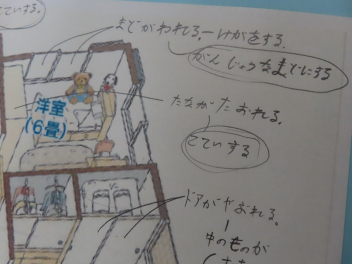 こていする。
まどがわれる。ーけがをする。
がんじょうなまどにする
洋室
(6畳)
たながたおれる。
こていする
ドアがやおれる。
中のものが